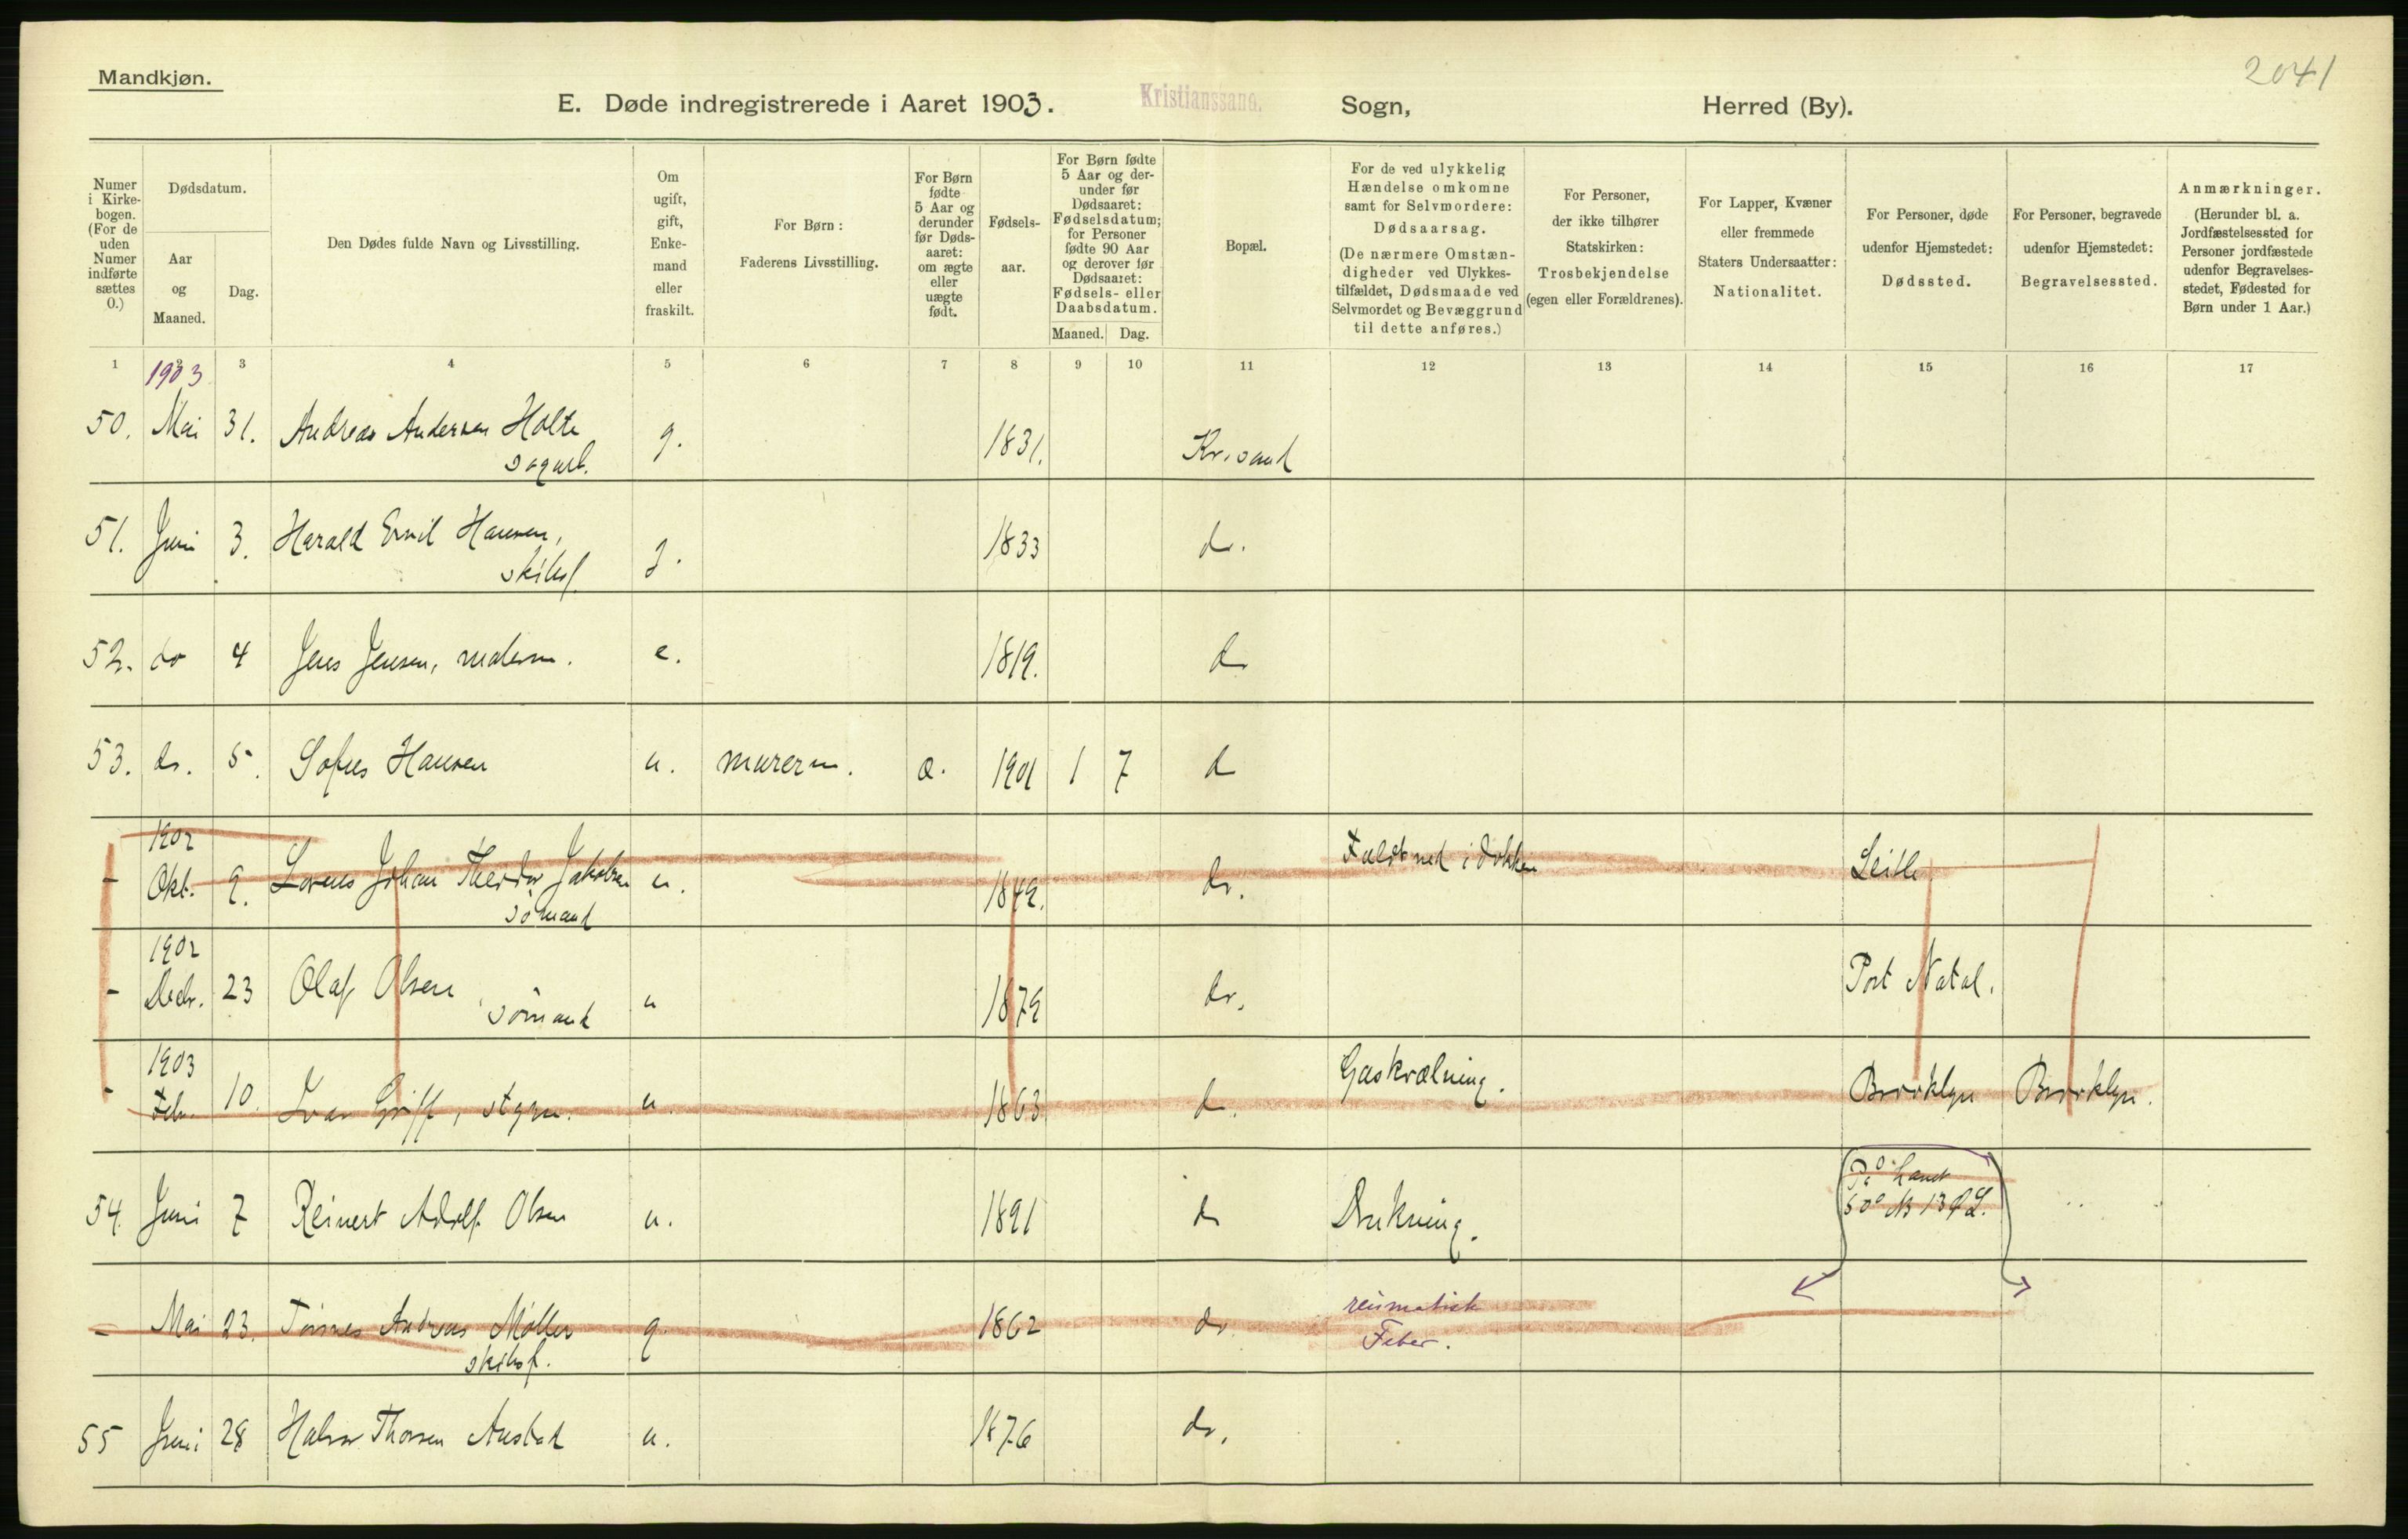 Mandkjøn.
2041
E. Døde indregistrerede i Aaret 1903. Kristianssand. Sogn, Herred (By).
Numer i Kirkebogen. (For de uden Numer indførte sættes 0.)
Dødsdatum.
Aar og Maaned.
Dag.
Den Dødes fulde Navn og Livsstilling.
Om ugift, gift, Enkemand eller fraskilt.
For Børn: Faderens Livsstilling.
For Børn fødte 5 Aar og derunder før Dødsaaret: om ægte eller uægte født.
Fødselsaar.
For Børn fødte 5 Aar og derunder før Dødsaaret: Fødselsdatum; for Personer fødte 90 Aar og derover før Dødsaaret: Fødsels- eller Daabsdatum.
Maaned. Dag.
Bopæl.
For de ved ulykkelig Hændelse omkomne samt for Selvmordere: Dødsaarsag. (De nærmere Omstændigheder ved Ulykkestilfældet, Dødsmaade ved Selvmordet og Bevæggrund til dette anføres.)
For Personer, der ikke tilhører Statskirken: Trosbekjendelse (egen eller Forældrenes).
For Lapper, Kvæner eller fremmede Staters Undersaatter: Nationalitet.
For Personer, døde udenfor Hjemstedet: Dødssted.
For Personer, begravede udenfor Hjemstedet: Begravelsessted.
Anmærkninger. (Herunder bl. a. Jordfæstelsessted for Personer jordfæstede udenfor Begravelsesstedet, Fødested for Børn under 1 Aar.)
1 2 3 4 5 6 7 8 9 10 11 12 13 14 15 16 17
1903
50. Mai 31. Andreas Andersen Holte g. 1831. Kr.sand
sagarb.
51. Juni 3. Harald Emil Hansen, g. 1833 do.
skibsf.
52. do 4 Jens Jensen, malerm. e. 1819. do
53. do. 5. Sofus Hansen u. murerm. æ. 1901 1 7 do
1902
- Okt. 9. Lorens Johan Theodor Jakobsen u. 1849. do. Faldt ned i dokken Leith
sømand
1902
- Decbr. 23 Olaf Olsen, u 1879 do. Port Natal.
sømand
1903
- Febr. 10. Ivar Griff, styrm. u. 1863 do. Gaskvælning. Brooklyn Brooklyn.
54. Juni 7 Reinert Adolf Olsen u. 1891 do Drukning. På havet
50° N 13° L.
- Mai 23. Tønnes Andreas Møller g. 1862 do reumatisk
skibsf. Feber.
55 Juni 28 Halvor Thorsen Austad u. 1876 do.